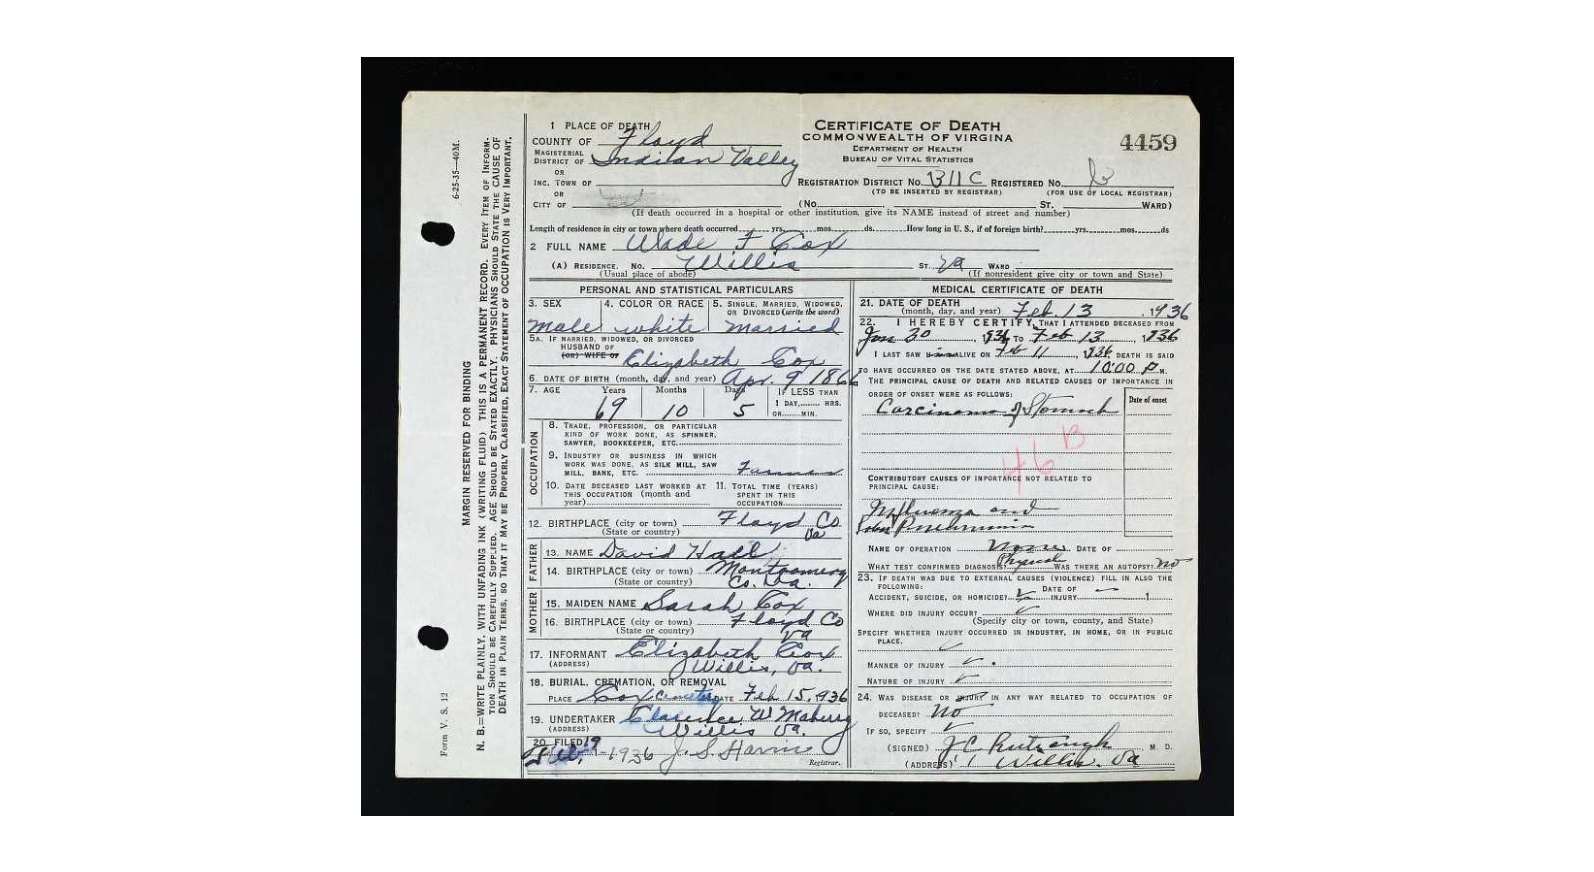 CERTIFICATE OF DEATH
COMMONWEALTH OF VIRGINIA
DEPARTMENT OF HEALTH
BUREAU OF VITAL STATISTICS
4459
1 PLACE OF DEATH
COUNTY OF Floyd
MAGISTERIAL DISTRICT OF Indian Valley
OR
INC. TOWN OF
REGISTRATION DISTRICT NO. 311C REGISTERED NO.
(TO BE INSERTED BY REGISTRAR) (FOR USE OF LOCAL REGISTRAR)
OR
CITY OF (No. ST. WARD)
(If death occurred in a hospital or other institution, give its NAME instead of street and number)
Length of residence in city or town where death occurred yrs. mos. ds. How long in U. S., if of foreign birth? yrs. mos. ds
2 FULL NAME Wade F Cox
(A) RESIDENCE. No. Willis ST. Va WARD
(Usual place of abode) (If nonresident give city or town and State)
PERSONAL AND STATISTICAL PARTICULARS
3. SEX 4. COLOR OR RACE 5. SINGLE, MARRIED, WIDOWED,
OR DIVORCED (write the word)
Male white Married
5A. IF MARRIED, WIDOWED, OR DIVORCED
HUSBAND OF
(OR) WIFE OF Elizabeth Cox
6. DATE OF BIRTH (month, day, and year) Apr. 9 1866
7. AGE Years Months Days IF LESS THAN
1 DAY, HRS.
OR MIN.
69 10 5
OCCUPATION
8. TRADE, PROFESSION, OR PARTICULAR
KIND OF WORK DONE, AS SPINNER,
SAWYER, BOOKKEEPER, ETC.
9. INDUSTRY OR BUSINESS IN WHICH
WORK WAS DONE, AS SILK MILL, SAW
MILL, BANK, ETC. Farmer
10. DATE DECEASED LAST WORKED AT
THIS OCCUPATION (month and
year)
11. TOTAL TIME (YEARS)
SPENT IN THIS
OCCUPATION
12. BIRTHPLACE (city or town) Floyd Co.
(State or country) Va
FATHER
13. NAME David Hall
14. BIRTHPLACE (city or town) Montgomery
(State or country) Co. Va.
MOTHER
15. MAIDEN NAME Sarah Cox
16. BIRTHPLACE (city or town) Floyd Co
(State or country) Va
17. INFORMANT Elizabeth Cox
(ADDRESS) Willis, Va.
18. BURIAL, CREMATION, OR REMOVAL
PLACE Cox Cemetery DATE Feb 15, 936
19. UNDERTAKER Clarence W Maberry
(ADDRESS) Willis Va.
20 FILED 19 1936 J. S. Harris
Registrar.
MEDICAL CERTIFICATE OF DEATH
21. DATE OF DEATH
(month, day, and year) Feb. 13, 1936
22. I HEREBY CERTIFY, THAT I ATTENDED DECEASED FROM
Jan 30, 1936 TO Feb 13, 1936
I LAST SAW ALIVE ON Feb 11, 1936, DEATH IS SAID
TO HAVE OCCURRED ON THE DATE STATED ABOVE, AT 10:00 P. M.
THE PRINCIPAL CAUSE OF DEATH AND RELATED CAUSES OF IMPORTANCE IN
ORDER OF ONSET WERE AS FOLLOWS: Date of onset
Carcinoma of Stomach
46B
CONTRIBUTORY CAUSES OF IMPORTANCE NOT RELATED TO
PRINCIPAL CAUSE:
Influenza and
Pneumonia
NAME OF OPERATION None DATE OF
WHAT TEST CONFIRMED DIAGNOSIS? Physical WAS THERE AN AUTOPSY? No
23. IF DEATH WAS DUE TO EXTERNAL CAUSES (VIOLENCE) FILL IN ALSO THE
FOLLOWING:
ACCIDENT, SUICIDE, OR HOMICIDE? DATE OF INJURY 1
WHERE DID INJURY OCCUR?
(Specify city or town, county, and State)
SPECIFY WHETHER INJURY OCCURRED IN INDUSTRY, IN HOME, OR IN PUBLIC
PLACE.
MANNER OF INJURY
NATURE OF INJURY
24. WAS DISEASE OR INJURY IN ANY WAY RELATED TO OCCUPATION OF
DECEASED? No
IF SO, SPECIFY
(SIGNED) J C Rutrough M. D.
(ADDRESS) Willis. Va
Form V. S. 12
6-25-35—40M.
MARGIN RESERVED FOR BINDING
N. B.—WRITE PLAINLY, WITH UNFADING INK (WRITING FLUID) THIS IS A PERMANENT RECORD. EVERY ITEM OF INFORM-
TION SHOULD BE CAREFULLY SUPPLIED. AGE SHOULD BE STATED EXACTLY. PHYSICIANS SHOULD STATE THE CAUSE OF
DEATH IN PLAIN TERMS, SO THAT IT MAY BE PROPERLY CLASSIFIED. EXACT STATEMENT OF OCCUPATION IS VERY IMPORTANT.